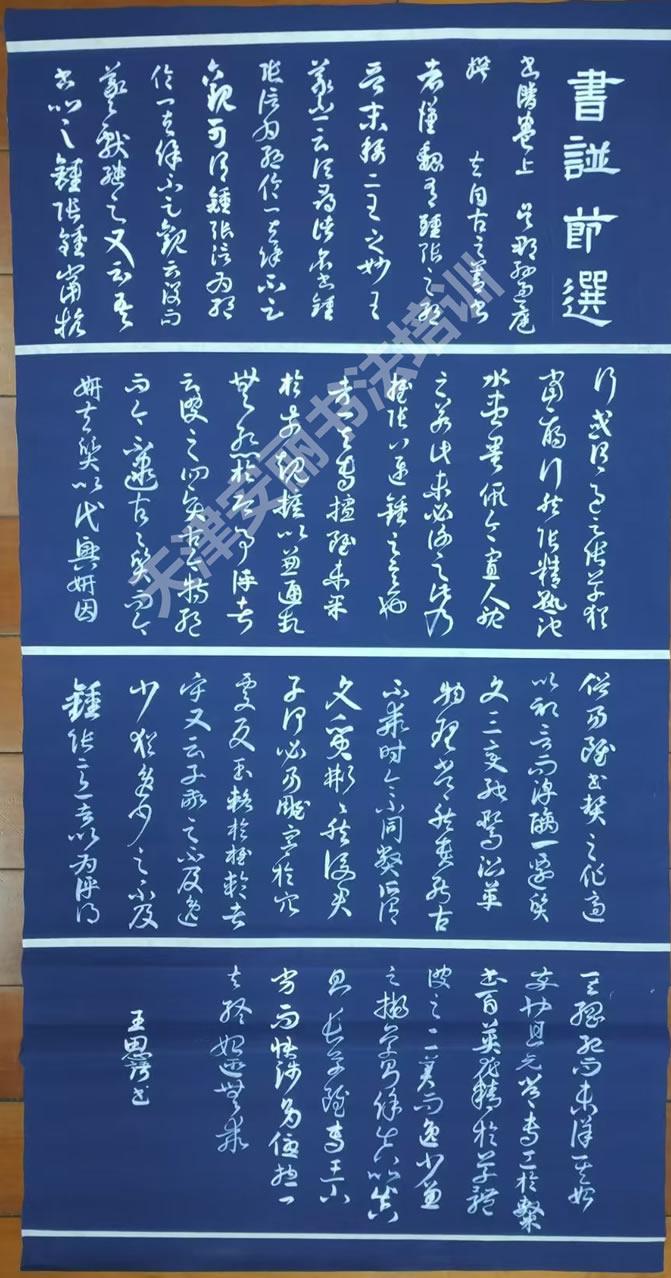 書譜 節選
書譜卷上 吳郡孫過庭
撰 夫自古之善書
者漢魏有鍾張之絕
晉末稱二王之妙王
羲之云頃尋諸名書鍾
張信為絕倫其餘不足
觀可謂鍾張信為絕
倫其餘不足觀云沒而
羲獻繼之又云吾
書比之鍾張鍾當抗
行或謂過之張草猶
當鴈行然張精熟池
水盡墨假令寡人耽
之若此未必謝之此乃
推張邁鍾之意也
考其專擅雖未果
於前規摭以兼通故
無慙於即事評者
云彼之四賢古今特絕
而今不逮古古質而今
妍夫質以代興妍因
俗易雖書契之作適
以記言而淳醨一遷質
文三變馳騖沿革
物理常然貴能古
不乖時今不同弊所謂
文質彬彬然後君
子何必易雕宮於穴
處反玉輅於椎輪者
乎又云子敬之不及逸
少猶逸少之不及
鍾張意者以為評得
其綱紀而未詳其始
卒也且元常專工於隸
書百英尤精於草體
彼之二美而逸少兼
之擬草則餘真比真
則長草雖專工小
劣而博涉多優總其
終始匪無乖
王思書
天津安丽书法培训